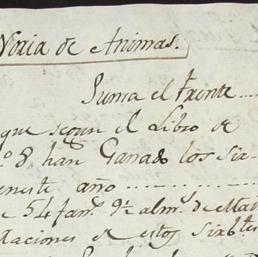 Noria de Animas.
Suma el frente ....
que segun el Libro de
º 8, han Ganado los Six-
eneste año ..........
e 54 fanˢ 9½ almˢ de Mai
taciones de estos six